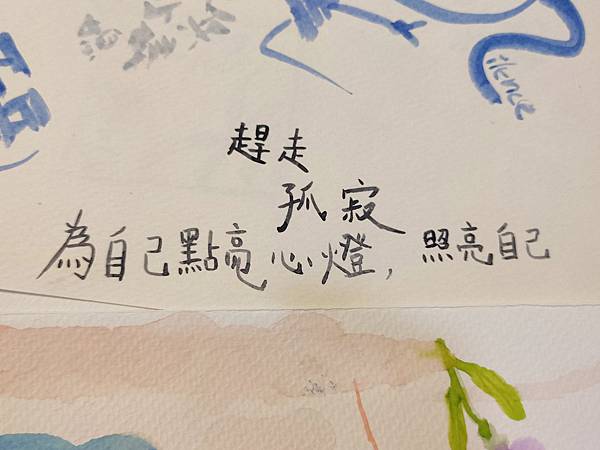 silence
趕走
孤寂
為自己點亮心燈，照亮自己